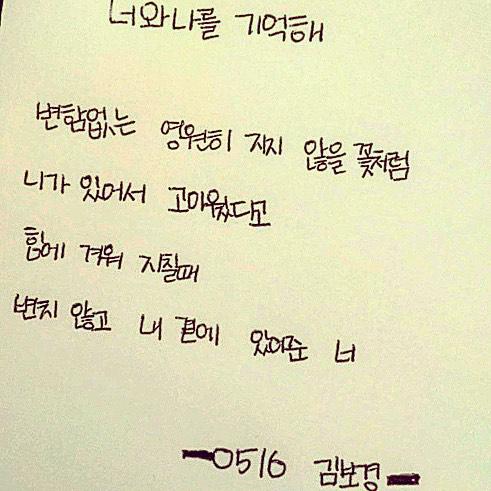 너와 나를 기억해
변함없는 영원히 지지 않을 꽃처럼
니가 있어서 고마웠다고
힘에 겨워 지칠때
변치 않고 내 곁에 있어준 너
-0516 김보경-